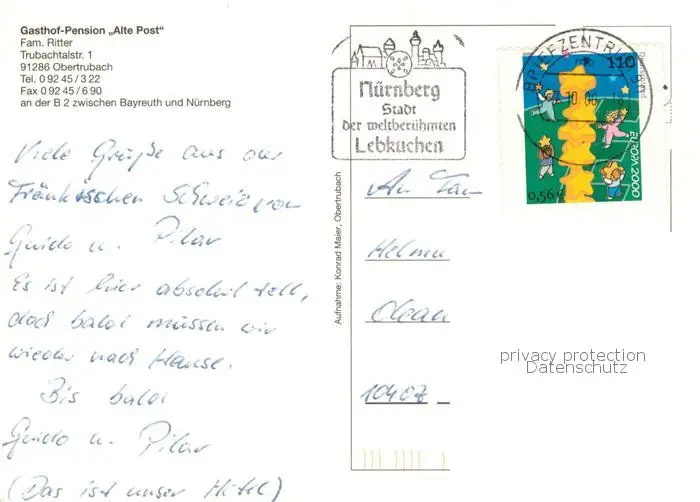 Gasthof-Pension „Alte Post“
Fam. Ritter
Trubachtalstr. 1
91286 Obertrubach
Tel. 0 92 45 / 3 22
Fax 0 92 45 / 6 90
an der B 2 zwischen Bayreuth und Nürnberg
Viele Grüße aus der
Fränkischen Schweiz von
Guido u. Pilar
Es ist hier absolut toll,
doch bald müssen wir
wieder nach Hause.
Bis bald
Guido u. Pilar
(Das ist unser Hotel)
Aufnahme: Konrad Maier, Obertrubach
Nürnberg
Stadt
der weltberühmten
Lebkuchen
BRIEFZENTRUM
110
Deutschland
EUROPA 2000
0,56€
An Fam
Helmu
10407
privacy protection
Datenschutz